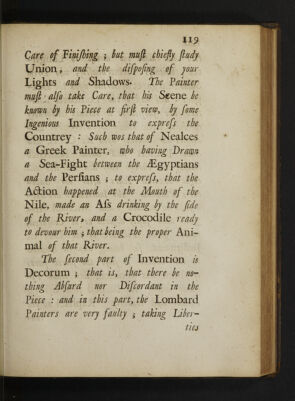 119
Care of Finiſhing ; but muſt chiefly ſtudy
Union, and the diſpoſing of your
Lights and Shadows. The Painter
muſt alſo take Care, that his Scene be
known by his Piece at firſt view, by ſome
Ingenious Invention to expreſs the
Countrey : Such was that of Nealces
a Greek Painter, who having Drawn
a Sea-Fight between the Ægyptians
and the Perſians ; to expreſs, that the
Action happened at the Mouth of the
Nile, made an Aſs drinking by the ſide
of the River, and a Crocodile ready
to devour him ; that being the proper Ani-
mal of that River.
The ſecond part of Invention is
Decorum ; that is, that there be no-
thing Abſurd nor Diſcordant in the
Piece : and in this part, the Lombard
Painters are very faulty ; taking Liber-
ties